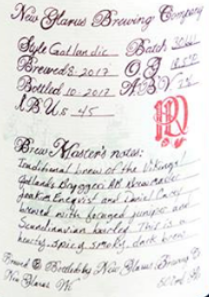 New Glarus Brewing Company
Style Gotlandic Batch
Brewed 8. 2017 O.G
Bottled 10. 2017 A.B.V
I.B.U.s 45
Brew Master's notes:
Traditional brew of the Vikings!
Gotlands Bryggeri AB Brewmaster
and Daniel
brewed with foraged juniper and
Scandinavian barley. This is a
hearty, spicy, smoky, dark brew
Brewed & Bottled by New Glarus Brewing
New Glarus, WI